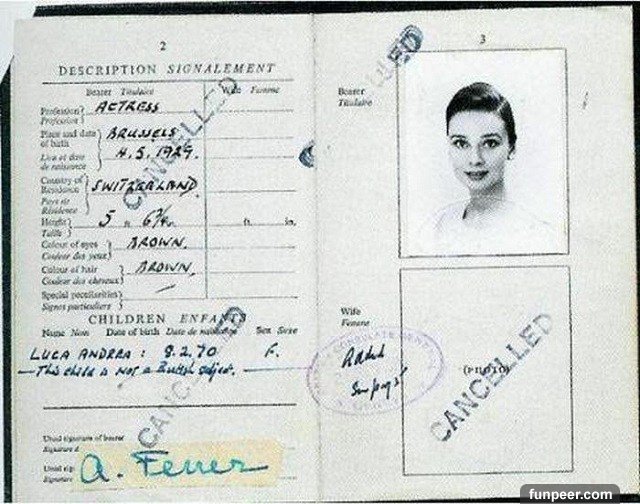 2
DESCRIPTION SIGNALEMENT
Bearer Titulaire
Wife Femme
Profession
Profession
ACTRESS
Place and date of birth
Lieu et date de naissance
BRUSSELS
4.5.1929.
Country of Residence
Pays de Résidence
SWITZERLAND
Height
Taille
5 ft 6¾ in.
ft. in.
Colour of eyes
Couleur des yeux
BROWN.
Colour of hair
Couleur des cheveux
BROWN.
Special peculiarities
Signes particuliers
CANCELLED
CHILDREN ENFANTS
Name Nom Date of birth Date de naissance Sex Sexe
LUCA ANDREA : 8.2.70 F.
This child is not a British subject.
CANCELLED
Usual signature of bearer
Signature
Usual
Signature
A. Ferrer
3
CANCELLED
Bearer
Titulaire
Wife
Femme
(PHOTO)
CANCELLED
funpeer.com